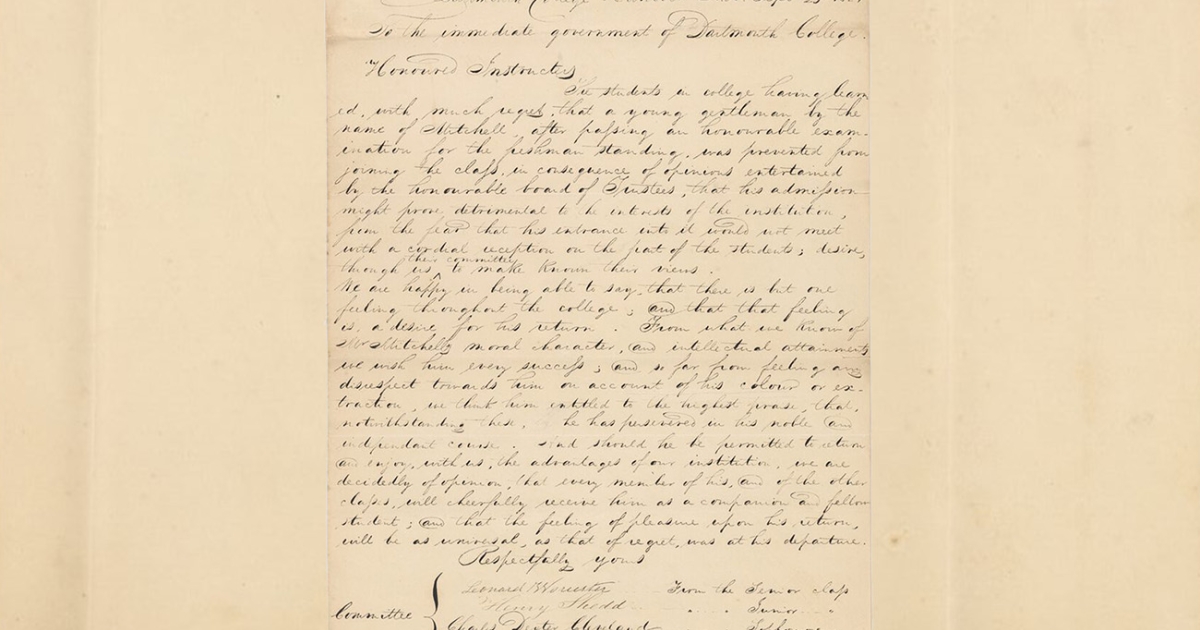 Dartmouth College
To the immediate government of Dartmouth College.
Honoured Instructers
The students in college having learn
ed, with much regret, that a young gentleman by the
name of Mitchell, after passing an honourable exam-
ination for the freshman standing, was prevented from
joining the class, in consequence of opinions entertained
by the honourable board of Trustees, that his admission
might prove detrimental to the interests of the institution,
from the fear that his entrance into it would not meet
with a cordial reception on the part of the students; desire,
their committee
through us, to make known their views.
We are happy in being able to say, that there is but one
feeling throughout the college; and that that feeling
is, a desire for his return. From what we know of
Mr Mitchells moral character, and intellectual attainments
we wish him every success; and so far from feeling any
disrespect towards him on account of his colour or ex-
traction, we think him entitled to the highest praise, that,
notwithstanding these, he has persevered in his noble and
independant course. And should he be permitted to return
and enjoy, with us, the advantages of our institution, we are
decidedly of opinion, that every member of his, and of the other
classes, will cheerfully receive him as a companion and fellow
student; and that the feeling of pleasure upon his return,
will be as universal, as that of regret, was at his departure.
Respectfully yours
Leonard Worcester From the Senior class
Henry Shedd " Junior "
Committee { Charles Dexter Cleveland